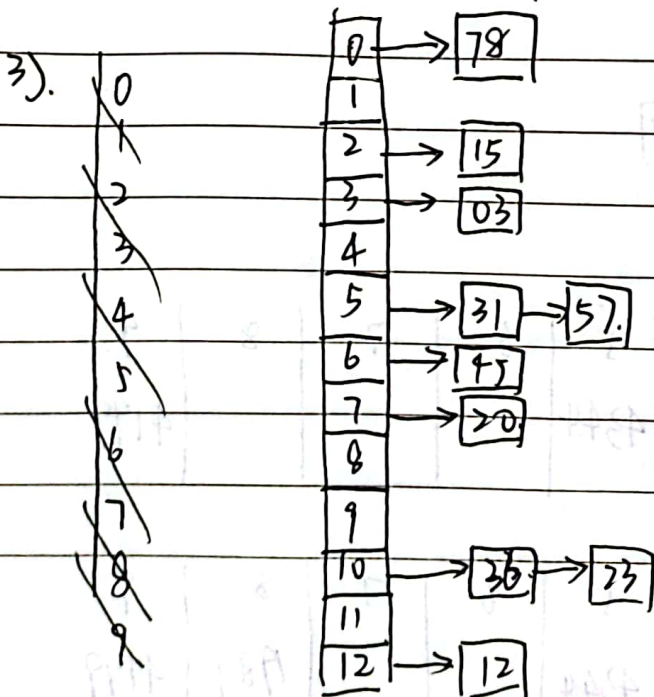 3).
0
1
2
3
4
5
6
7
8
9
0 → 78
1
2 → 15
3 → 03
4
5 → 31 → 57.
6 → 45
7 → 20.
8
9
10 → 36 → 23
11
12 → 12